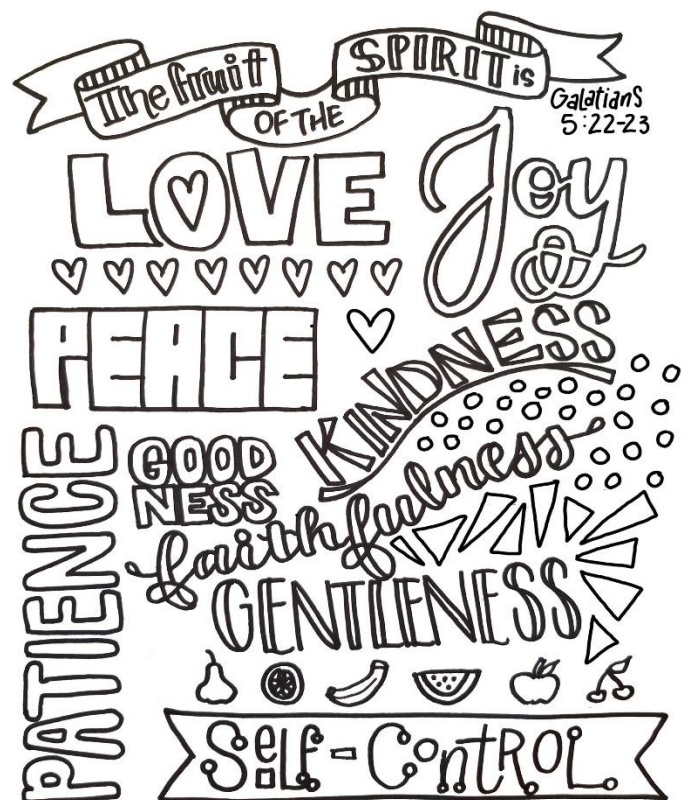 The fruit
OF THE
SPIRIT is
Galatians
5:22-23
LOVE
Joy
&
PEACE
KINDNESS
PATIENCE
GOOD
NESS
faithfulness
GENTLENESS
Self-Control